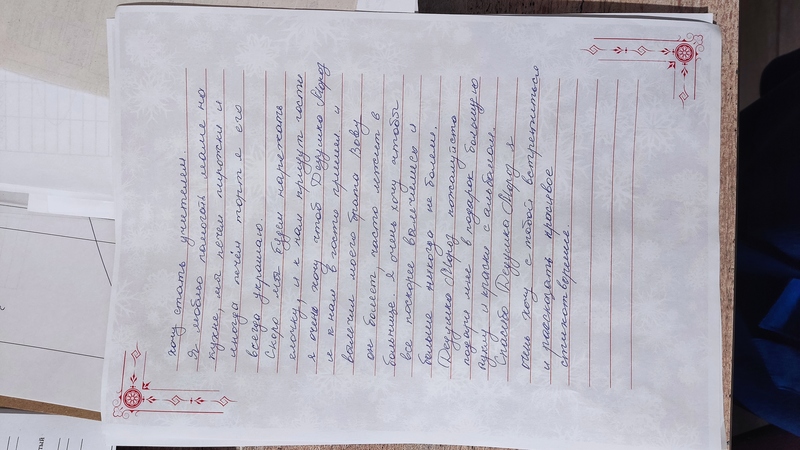 хочу стать учителем.
Я люблю помогать маме на
кухне, мы печем пирожки и
иногда печём торт я его
всегда украшаю.
Скоро мы будем наряжать
елочку, и к нам придут гости
я очень хочу чтоб Дедушка Мороз
и к нам в гости пришел и
вылечил моего брата Вову
он болеет часто лежит в
больнице. Я очень хочу чтобы
все поскорее вылечились и
больше никогда не болели.
Дедушка Мороз пожалуйста
подари мне в подарок большую
куклу и краски с альбомом.
Спасибо Дедушка Мороз я
очень хочу с тобой встретиться
и рассказать красивое
стихотворение